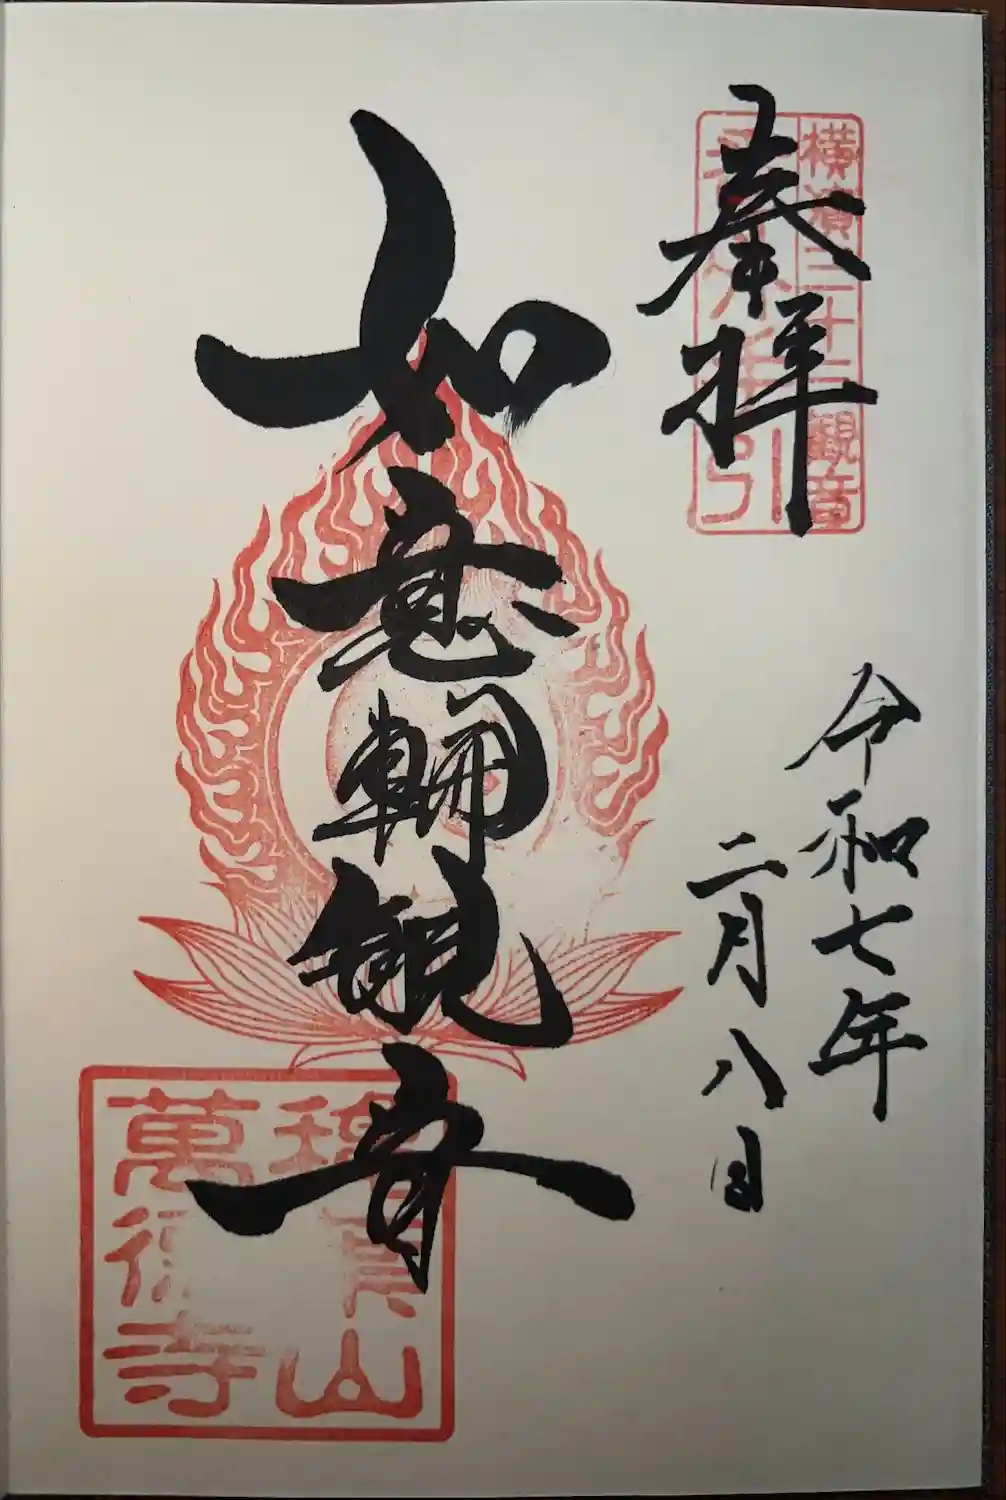 奉拝
横濱三十三観音
令和七年
二月八日
如意輪観音
山
萬徳寺